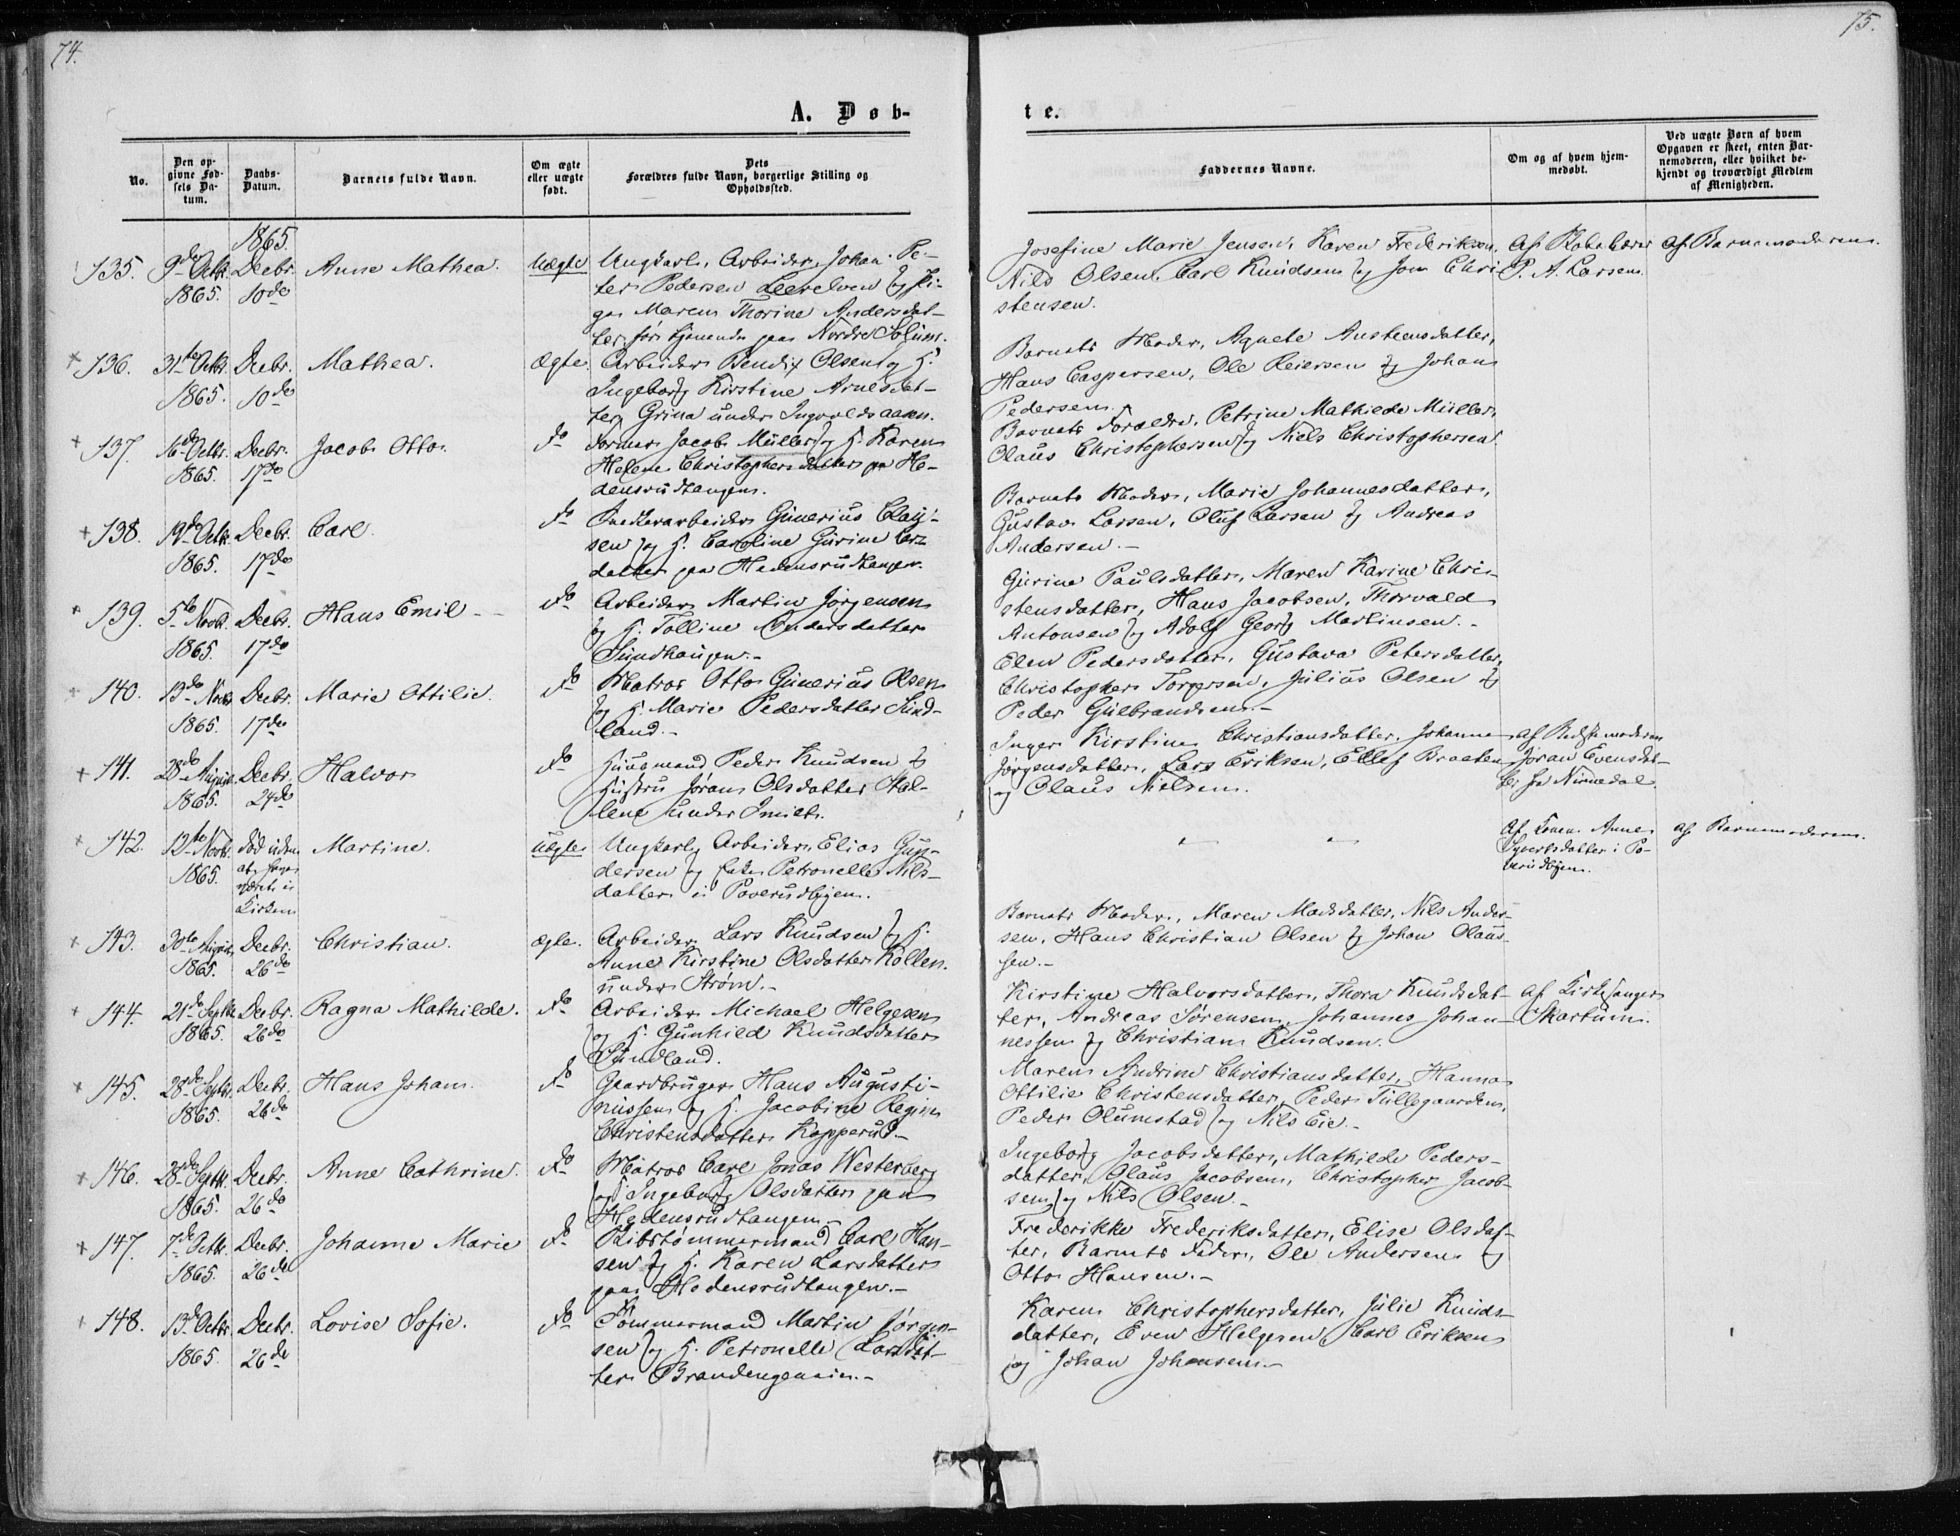 74.
75.
A. Døb-
te.
No.
Den op-
givne Fød-
sels Da-
tum.
Daabs-
Datum.
Barnets fulde Navn.
Om ægte
eller uægte
født.
Dets
Forældres fulde Navn, borgerlige Stilling og
Opholdssted.
Faddernes Navne.
Om og af hvem hjem-
medøbt.
Ved uægte Børn af hvem
Opgaven er skeet, enten Bar-
nemoderen, eller hvilket be-
kjendt og troværdigt Medlem
af Menigheden.
1865.
135. 9de Octbr. 1865. Decbr. 10de Anne Mathea. Uægte
Ungkarl, Arbeider, Johan Pe-
ter Pedersen Leerelven og Pi-
gen Maren Thorine Andersdat-
ter, før tjenende paa Nordre Solum.
Josefine Marie Jensen, Karen Frederiksen,
Nils Olsen, Carl Knudsen og Jon Chri-
stensen.
P. A. Larsen.
af Barnemoderen.
136. 31te Octbr. 1865. Decbr. 10de Mathea. Ægte.
Arbeider Bendix Olsen og H.
Ingeborg Kirstine Arnesdat-
ter Grina under Ingvoldsaasen.
Barnets Moder, Agnete Austeensdatter,
Hans Caspersen, Ole Reiersen og Johan
Pedersen.
137. 16de Octbr. 1865. Decbr. 17de Jacob Otto. do
Former Jacob Müller og H. Karen
Helene Christophersdatter paa He-
densrudtangen.
Barnets Forældre, Petrine Mathilde Müller,
Claus Christophersen og Niels Christophersen.
138. 19de Octbr. 1865. Decbr. 17de Carl. do
Snedkerarbeider Gunerius Clau-
sen og H. Caroline Gurine Lars-
datter paa Hedensrudtangen.
Barnets Moder, Marie Johannesdatter,
Gustav Larsen, Oluf Larsen og Andreas
Andersen.-
139. 5te Novbr. 1865. Decbr. 17de Hans Emil - do
Arbeider Martin Jørgensen
og H. Talline Andersdatter
Sundhaugen.-
Gurine Paulsdatter, Maren Karine Chri-
stensdatter, Hans Jacobsen, Thorvald
Antonsen og Adolf Georg Martinsen.-
140. 13de Novbr. 1865. Decbr. 17de Marie Ottilie. do
Matros Otto Gunerius Olsen
og H. Marie Pedersdatter Sund-
land.-
Elen Pedersdatter, Gustava Petersdatter,
Christopher Torgersen, Julius Olsen og
Peder Gulbrandsen.-
141. 28de August 1865. Decbr. 24de Halvor do
Huusmand Peder Knudsen og
Hustru Jøran Olsdatter Hal-
lene under Smith.
Inger Kirstine Christiansdatter, Johanne
Jørgensdatter, Lars Eriksen, Ellef Braaten
og Claus Nielsen.
Jøran Evensdat-
ter
142. 12te Novbr. 1865. død uden at have været i Kirken Martine. Uægte
Ungkarl, Arbeider Elias Gun-
dersen og Petronelle Nils-
datter i Poverudbyen.
" "
Af Anne
Syvertsdatter i Po-
verudbyen.
af Barnemoderen.
143. 30te August 1865. Decbr. 26de Christian. ægte.
Arbeider Lars Knudsen og H.
Anne Kirstine Olsdatter Kollen
under Strøm.-
Barnets Moder, Maren Madsdatter, Nils Ander-
sen, Hans Christian Olsen og Johan Claus-
sen.-
144. 21de Septbr. 1865. Decbr. 26de Ragna Mathilde. do
Arbeider Michael Helgesen
og H. Gunhild Knudsdatter
Sundland.
Kirstine Halvorsdatter, Thora Knudsdat-
ter, Andreas Sørensen, Johannes Johan-
nessen og Christian Knudsen.
af Kirkesanger
Skartum.
145. 28de Septbr. 1865. Decbr. 26de Hans Johan. do
Gaardbruger Hans Augusti-
nussen og H. Jacobine Regine
Christensdatter Kopperud.-
Maren Andrine Christiansdatter, Hanna
Ottilie Christensdatter, Peder Tullegaarden,
Peder Olumstad og Nils Eie.-
146. 28de Septbr. 1865. Decbr. 26de Anne Cathrine. do
Matros Carl Jonas Westerberg
og H. Ingeborg Olsdatter paa
Hedensrudtangen.-
Ingeborg Jacobsdatter, Mathilde Peders-
datter, Claus Jacobsen, Christopher Jacob-
sen og Nils Olsen.-
147. 7de Octbr. 1865. Decbr. 26de Johanne Marie do
Skibstømmermand Carl Han-
sen og H. Karen Larsdatter
paa Hedensrudtangen.-
Frederikke Frederiksdatter, Elise Olsdat-
ter, Barnets Fader, Ole Andersen og
Otto Hansen.-
148. 13de Octbr. 1865. Decbr. 26de Lovise Sofie. do
Tømmermand Martin Jørgen-
sen og H. Petronelle Larsdat-
ter Brandengenein.-
Karen Christophersdatter, Julie Knuds-
datter, Even Helgesen, Carl Eriksen
og Johan Johansen.-